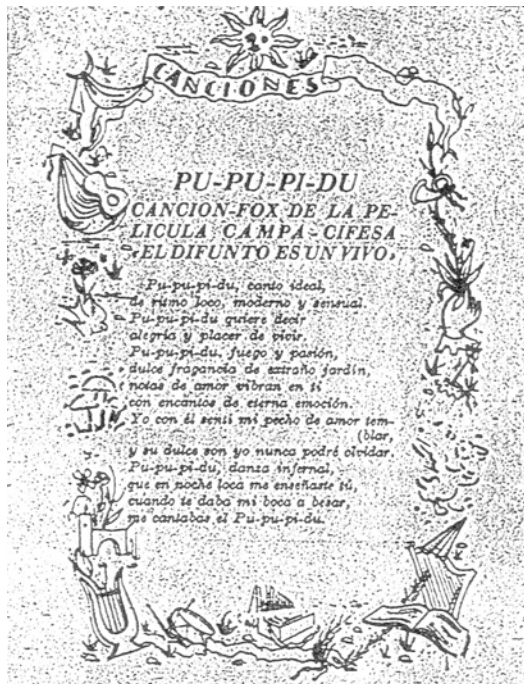 CANCIONES
PU-PU-PI-DU
CANCION-FOX DE LA PE-
LICULA CAMPA-CIFESA
«EL DIFUNTO ES UN VIVO»
Pu-pu-pi-du, canto ideal,
de ritmo loco, moderno y sensual.
Pu-pu-pi-du quiere decir
alegría y placer de vivir.
Pu-pu-pi-du, fuego y pasión,
dulce fragancia de extraño jardín,
notas de amor vibran en ti
con encantos de eterna emoción.
Yo con él sentí mi pecho de amor tem-
(blar,
y su dulce son yo nunca podré olvidar.
Pu-pu-pi-du, danza infernal,
que en noche loca me enseñaste tú,
cuando te daba mi boca a besar,
me cantabas el Pu-pu-pi-du.